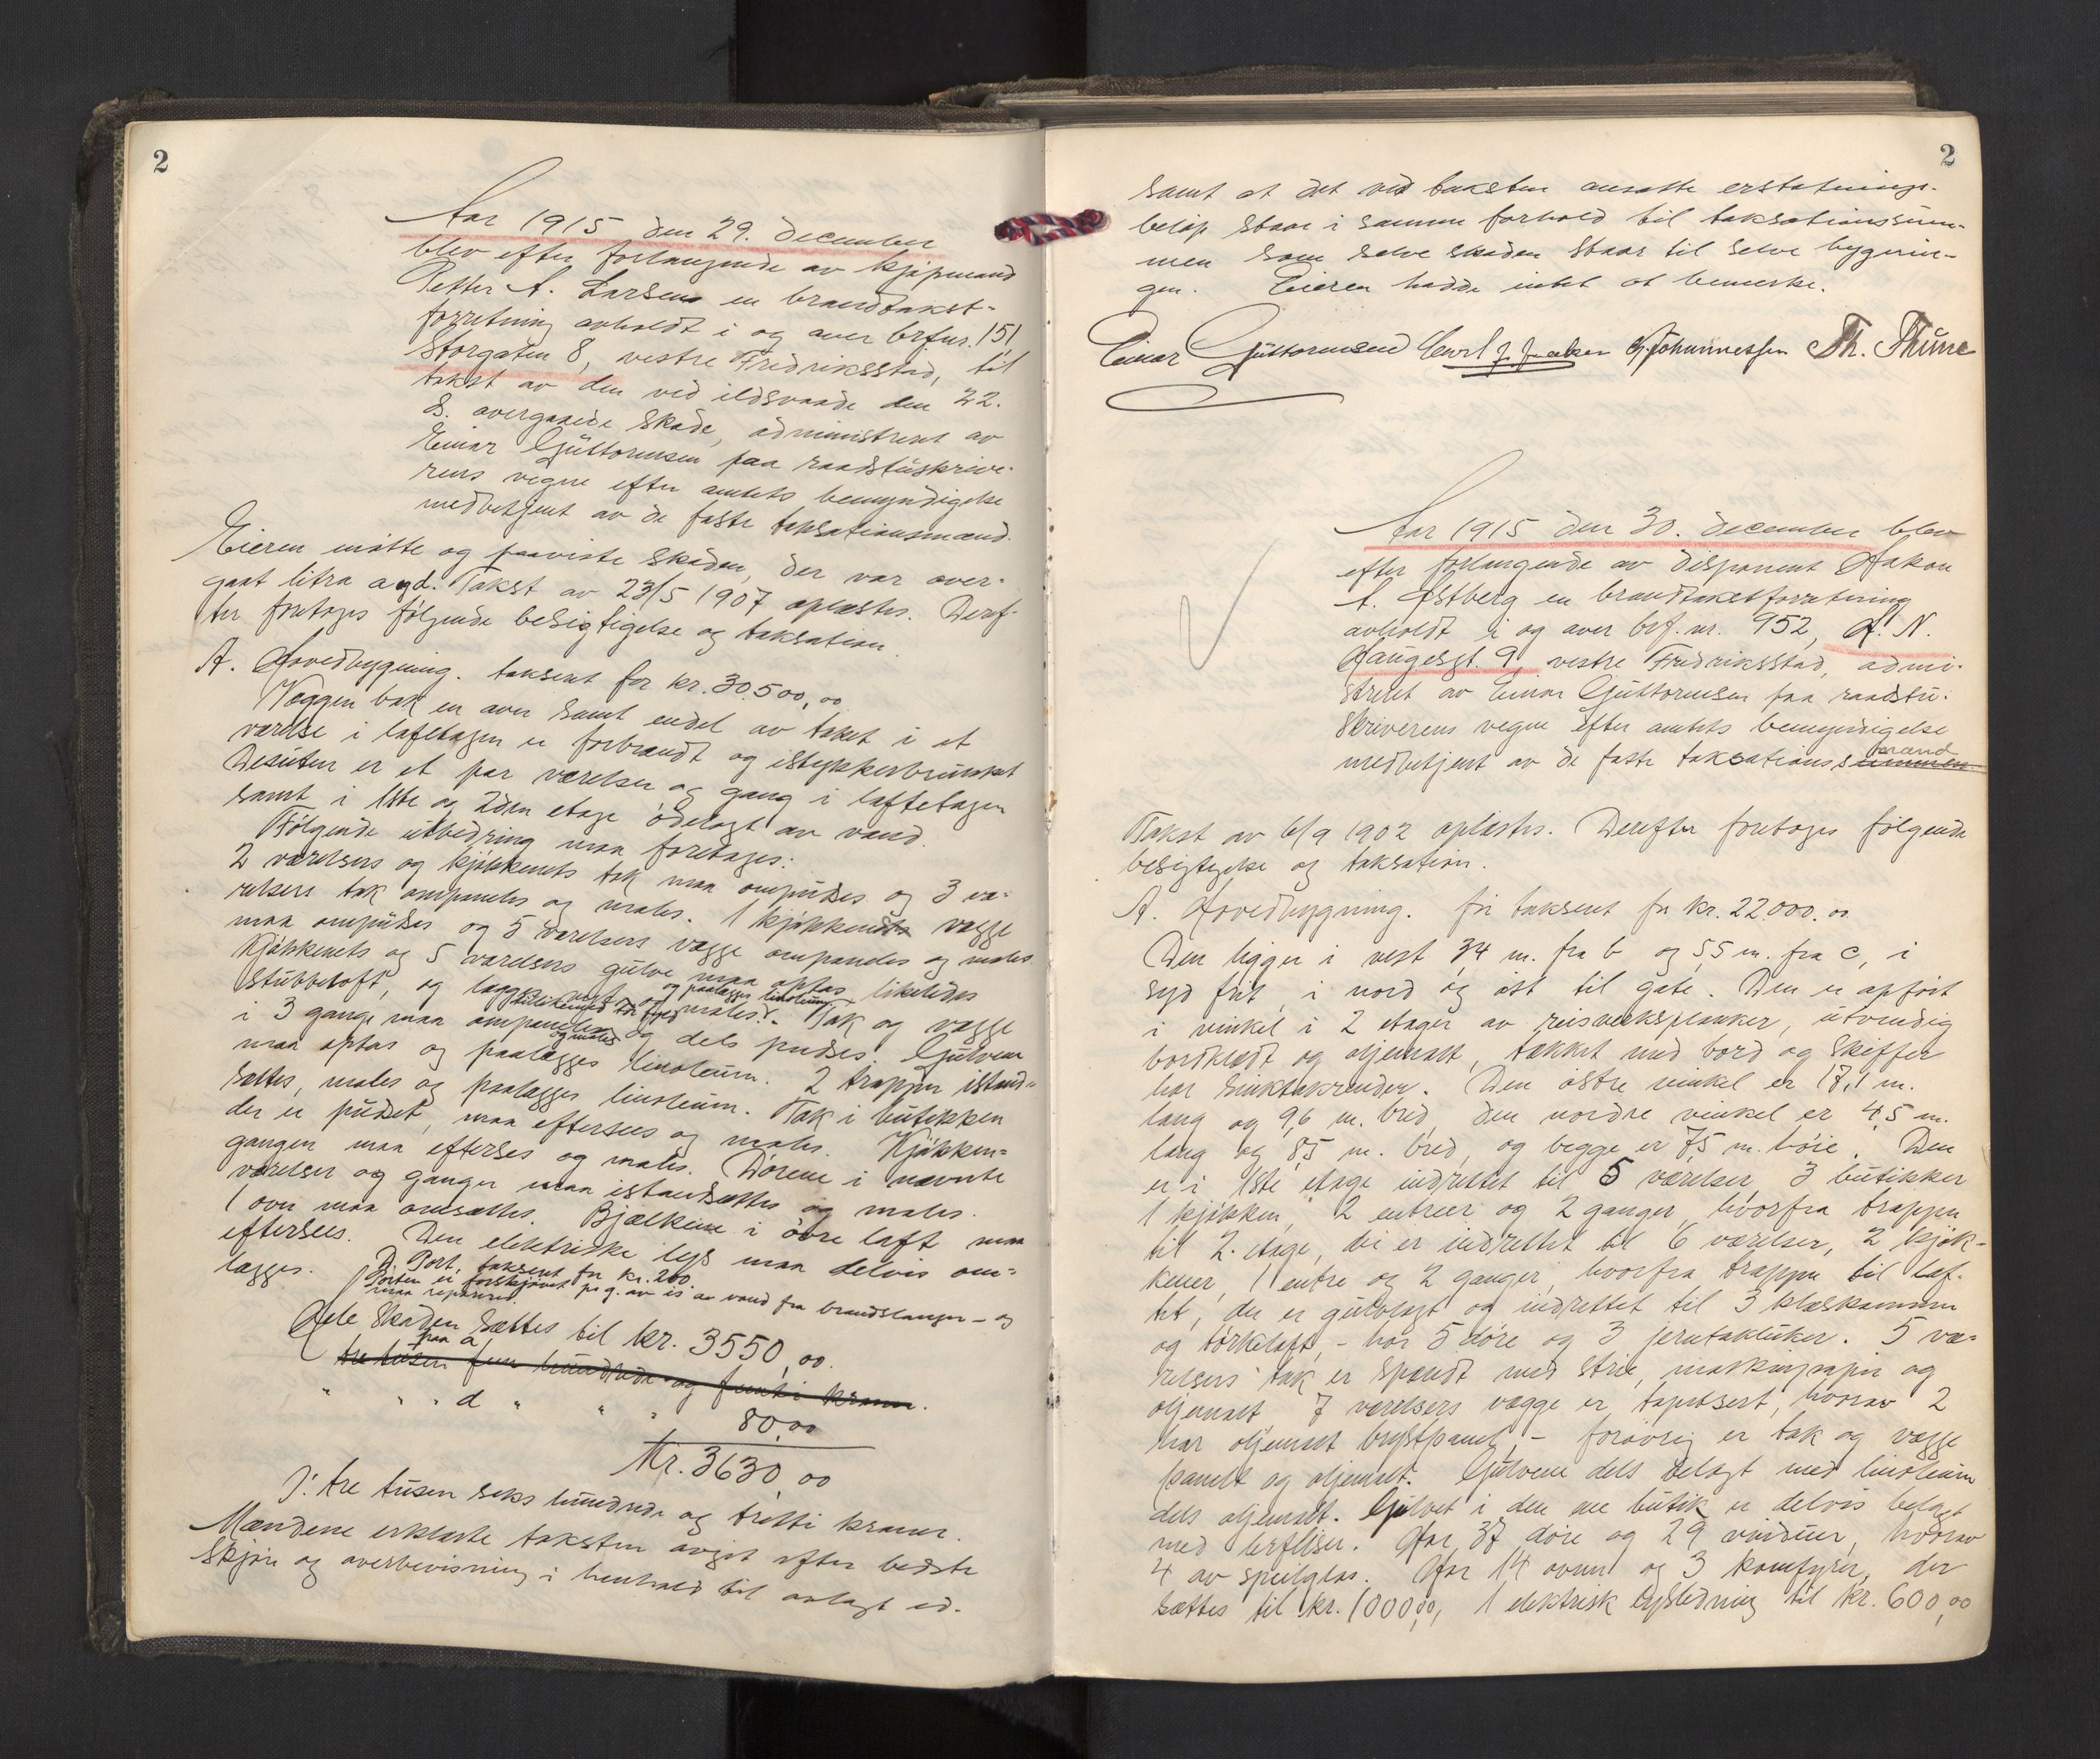 2
Aar 1915 den 29. december
blev efter forlangende av kjøpmand
Petter A. Larsen en brandtakst-
forretning avholdt i og over brfnr. 151,
Storgaten 8, vestre Fredriksstad, til
takst av den ved ildsvaade den 22.
s. overgaaede skade, administrert av
Einar Guttormsen paa raadstuskrive-
rens vegne efter amtets bemyndigelse
medbetjent av de faste taksationsmænd.
Eieren møtte og paaviste skaden, der var over-
gaat litra a og d. Takst av 23/5 1907 oplæstes. Deref-
ter foretoges følgende besigtigelse og taksation.
A. Hovedbygning. taksert for kr. 30500,00
Væggen bak en ovn samt endel av taket i et
værelse i loftetagen er forbrændt og istykkerbrukket
Desuten er et par værelser og gang i loftetagen
samt i 1ste og 2den etage ødelagt av vand.
Følgende utbedring maa foretages:
2 værelsers og kjøkkenets tak maa ompudses og 3 væ-
relsers tak ompaneles og males. 1 kjøkkens vægge
maa ompudses og 5 værelsers vægge ompaneles og males
Kjøkkenets og 5 værelsers gulve maa optas likeledes
stubbeloft, og lægges nyt og males. Tak og vægge
og paalægges linoleum
i 3 gange maa ompaneles og dels pudses. Gulvene
og males
maa optas og paalægges linoleum. 2 trapper istand-
sættes, males og paalægges linoleum. Tak i butikken
der er pudset, maa eftersees og males. Kjøkken-
gangen maa efterses og males. Dørene i nævnte
værelser og ganger maa istandsættes og males.
1 ovn maa omsættes. Bjælkene i øvre loft maa
eftersees. Den elektriske lys maa delvis om-
lægges.
D. Port, taksert for kr. 200.
Porten er forskjøvet pr. g. av is av vand fra brandslanger - og
maa repareres.
Hele skaden sættes til kr. 3550,00.
paa a
tre tusen fem hundrede og femti kroner.
" " " d " " " 80,00
Kr. 3630,00
J: tre tusen seks hundrede og tretti kroner.
Mændene erklærte taksten avgit efter bedste
skjøn og overbevisning i henhold til avlagt ed.
2
samt at det ved taksten ansatte erstatnings-
beløp staar i samme forhold til taksationssum-
men som selve skaden staar til selve bygnin-
gen. Eieren hadde intet at bemerke.
Einar Guttormsen Carl J. Jacobsen Johannessen Th. Thune
Aar 1915 den 30. december blev
efter forlangende av disponent Hakon
A. Østberg en brandtakstforretning
avholdt i og over brf. nr. 952, H. N.
Haugesgt. 9, vestre Fredriksstad, admi-
strert av Einar Guttormsen paa raadstu-
skriverens vegne efter amtets bemyndigelse
mænd
medbetjent av de faste taksations
Takst av 6/9 1902 oplæstes. Derefter foretoges følgende
besigtigelse og taksation.
A. Hovedbygning. før taksert for kr. 22.000.00
Den ligger i vest 3,4 m. fra b og 5,5 m. fra c, i
syd frit i nord og øst til gate. Den er opført
i vinkel i 2 etager av reisverksplanker, utvendig
bordklædt og oljemalt, tækket med bord og skiffer
har sinktakrender. Den østre vinkel er 17,1 m.
lang og 9,6 m. bred, den nordre vinkel er 4,5 m.
lang og 8,5 m. bred, og begge er 7,5 m. høie. Den
er i 1ste etage indrettet til 5 værelser, 3 butikker
1 kjøkken, 2 entreer og 2 ganger, hvorfra trapper
til 2. etage, der er indrettet til 6 værelser, 2 kjøk-
kener, 1 entre og 2 ganger, hvorfra trappe til lof-
tet, der er gulvlagt og indrettet til 3 klæskammer
og tørkeloft, - har 5 døre og 3 jerntakluker. 5 væ-
relsers tak er spændt med strie, maskinpapir og
oljemalt, 7 værelsers vægge er tapetsert, hvorav 2
har oljemalt brystpanel, - forøvrig er tak og vægge
panelt og oljemalt. Gulvene dels belagt med linoleum
dels oljemalt. Gulvet i den ene butik er delvis belagt
med terfliser. Har 37 døre og 29 vinduer, hvorav
4 av speilglas. Har 14 ovner og 3 komfyrer, der
sættes til kr. 1000,00, 1 elektrisk lysledning til kr. 600,00